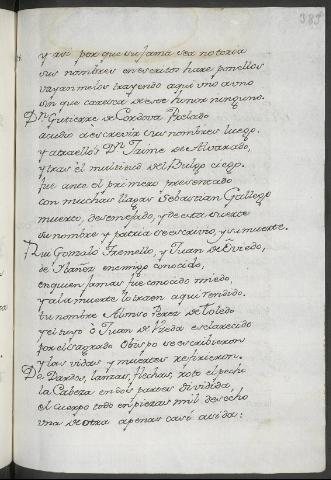 383
y assi por que su fama sea notoria
sus nombres en escritos hare ponellos
vayanmelos trayendo aqui uno a uno
sin que caresca de ese honor ninguno.
Dn. Gutierre de Cordova Prelado
acudio a escrevir sus nombres luego.
y atraellos Dn. Jaime de Alvarado,
y tras el multitud del Bulgo ciego.
fue ante el primero presentado
con muchas llagas Sebastian Gallego
muerto, desemejado, y de esta suerte
su nombre y patria se escrivio, y su muerte.
Rui Gonzalo Tremello, y Juan de Oviedo,
de Ibañez enemigo conocido,
en quien jamas fue conocido miedo,
y a la muerte lo traen aqui tendido.
su nombre Alonso Perez de Toledo
y el suyo ô Juan de Rueda esclarecido
por el sagrado Obispo se escribieron
y las vidas y muertes refirieron.
De Dardos, lanzas, flechas, roto el pecho
la Cabeza en dos partes dividida,
el cuerpo todo en piezas mil desecho
una de otra apenas casi asida: